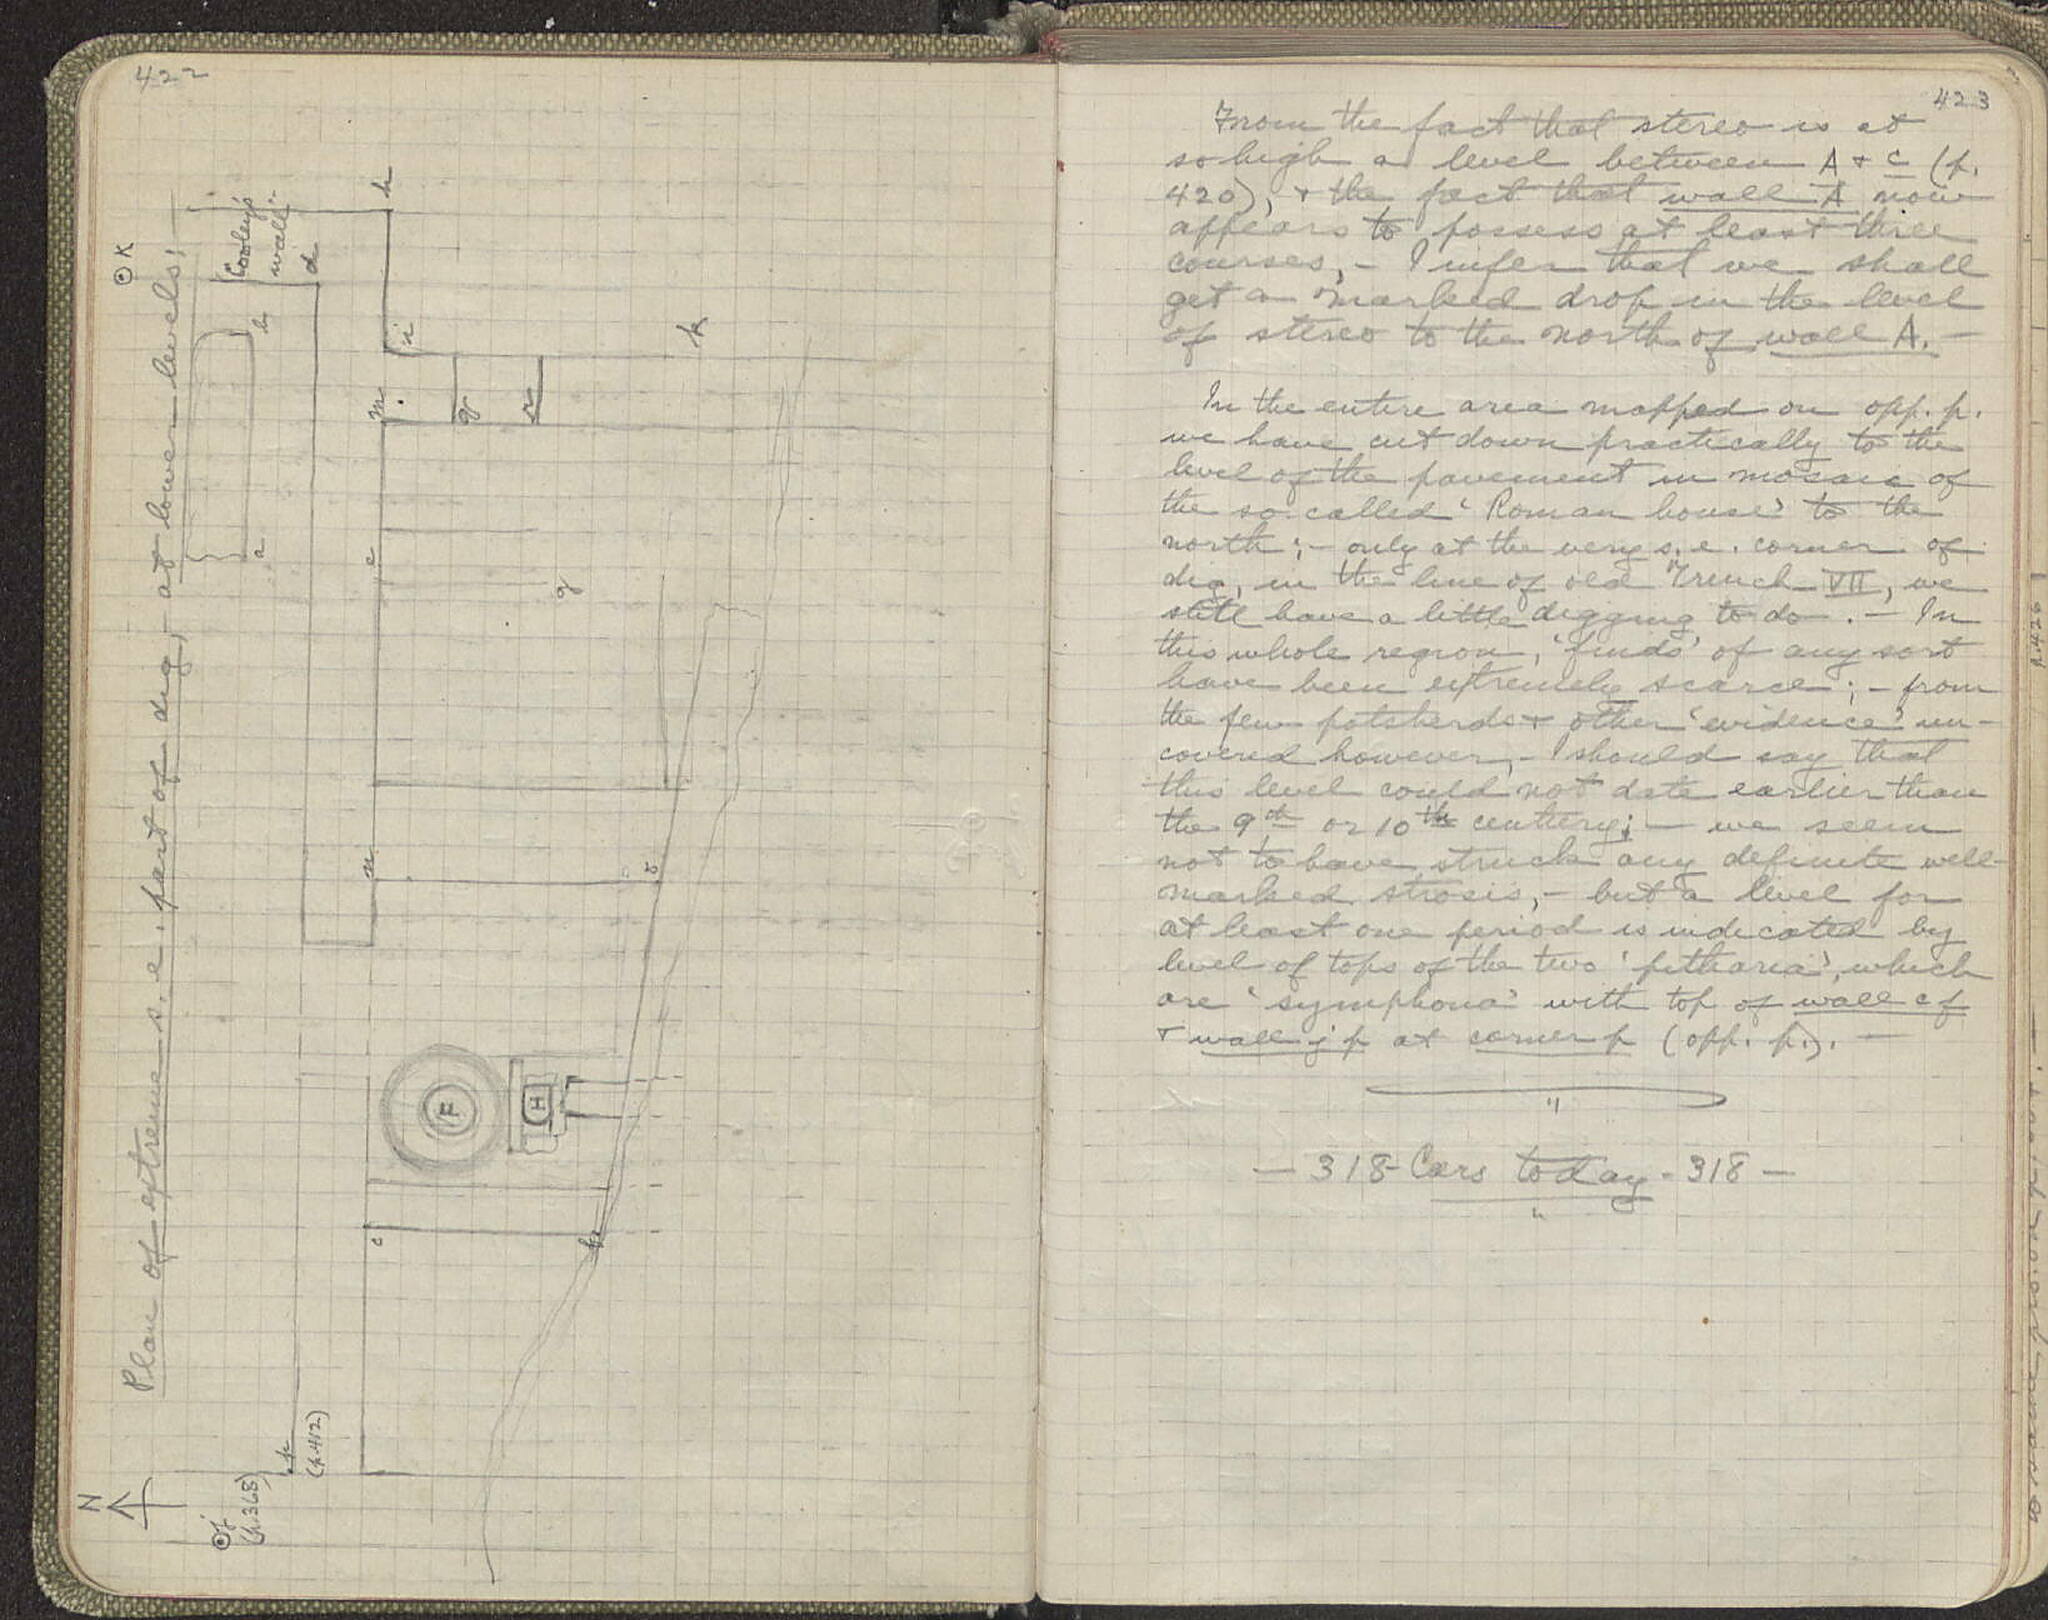 422
Plan of extreme s. e. part of dig, - at lower levels:
N
⊙ K
Cooley's
wall
d
h
b
a
i
k
m
q
r
e
g
n
o
F
H
c
p
(p. 412)
⊙ j
(p. 368)
423
From the fact that stereo is at
so high a level between A + C (p.
420), + the fact that wall A now
appears to possess at least three
courses, - I infer that we shall
get a marked drop in the level
of stereo to the north of wall A. -
In the entire area mapped on opp. p.
we have cut down practically to the
level of the pavement in mosaic of
the so-called 'Roman house' to the
north; - only at the very s. e. corner of
dig, in the line of old Trench VII, we
still have a little digging to do. - In
this whole region, 'finds' of any sort
have been extremely scarce; - from
the few potsherds + other 'evidence' un-
covered however, - I should say that
this level could not date earlier than
the 9th or 10th century; - we seem
not to have struck any definite well-
marked strosis, - but a level for
at least one period is indicated by
level of tops of the two 'pitharia', which
are 'symphona' with top of wall cf
+ wall jp at corner p (opp. p.). -
- 318 - Cars today - 318 -
p. 429